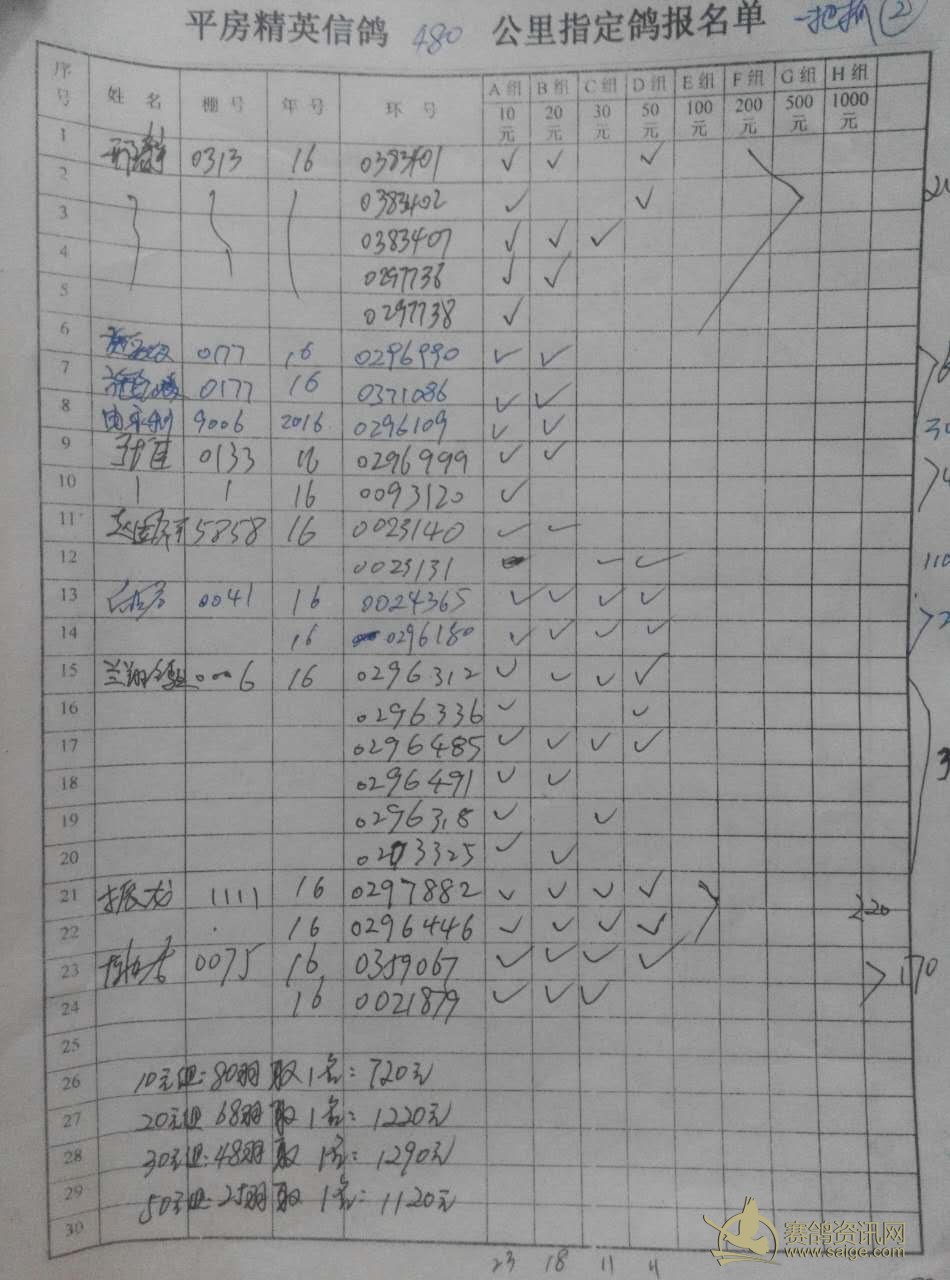 平房精英信鸽 480 公里指定鸽报名单 一把抓②
序号 姓名 棚号 年号 环号 A组 B组 C组 D组 E组 F组 G组 H组
10元 20元 30元 50元 100元 200元 500元 1000元
1 0313 16 0383401 ✓ ✓ ✓
2 0383402 ✓ ✓
3 0383407 ✓ ✓ ✓
4 0297736 ✓ ✓
5 0297738 ✓
6 0177 16 0296990 ✓ ✓
7 0177 16 0371086 ✓ ✓
8 9006 2016 0296109 ✓ ✓
9 0133 16 0296999 ✓ ✓
10 16 0093120 ✓
11 5858 16 0023140 ✓ ✓
12 0023131 ✓ ✓ 110
13 0041 16 0024365 ✓ ✓ ✓ ✓
14 16 0296180 ✓ ✓ ✓ ✓
15 0006 16 0296312 ✓ ✓ ✓ ✓
16 0296336 ✓ ✓
17 0296485 ✓ ✓ ✓ ✓
18 0296491 ✓ ✓
19 0296318 ✓ ✓
20 ✓ ✓
21 振龙 1111 16 0297882 ✓ ✓ ✓ ✓ 220
22 16 0296446 ✓ ✓ ✓ ✓
23 0075 16 0359067 ✓ ✓ ✓ ✓ 170
24 16 0021879 ✓ ✓ ✓
25
26 10元组:80羽取1名:720元
27 20元组 68羽取1名:1220元
28 30元组:48羽取1名:1290元
29 50元组 25羽取1名:1120元
30
23 18 11 11
赛鸽资讯网
www.saige.com